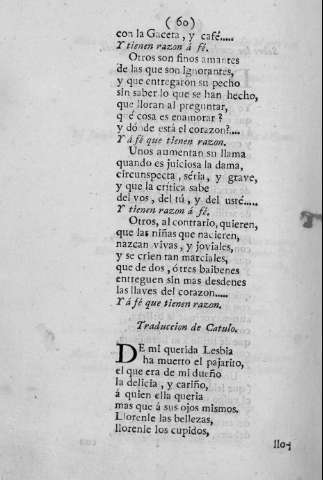 ( 60 )
con la Gaceta, y café.....
Y tienen razon á fé.
Otros son finos amantes
de las que son ignorantes,
y que entregaron su pecho
sin saber lo que se han hecho,
que lloran al preguntar,
qué cosa es enamorar?
y dónde está el corazon?....
Y á fé que tienen razon.
Unos aumentan su llama
quando es juiciosa la dama,
circunspecta, séria, y grave,
y que la crítica sabe
del vos, del tú, y del usté.....
Y tienen razon á fé.
Otros, al contrario, quieren,
que las niñas que nacieren,
nazcan vivas, y joviales,
y se crien tan marciales,
que de dos, ó tres baibenes
entreguen sin mas desdenes
las llaves del corazon.....
Y á fé que tienen razon.
Traduccion de Catulo.
DE mi querida Lesbia
ha muerto el pajarito,
el que era de mi dueño
la delicia, y cariño,
á quien ella queria
mas que á sus ojos mismos.
Llorenle las bellezas,
llorenle los cupidos,
llo-